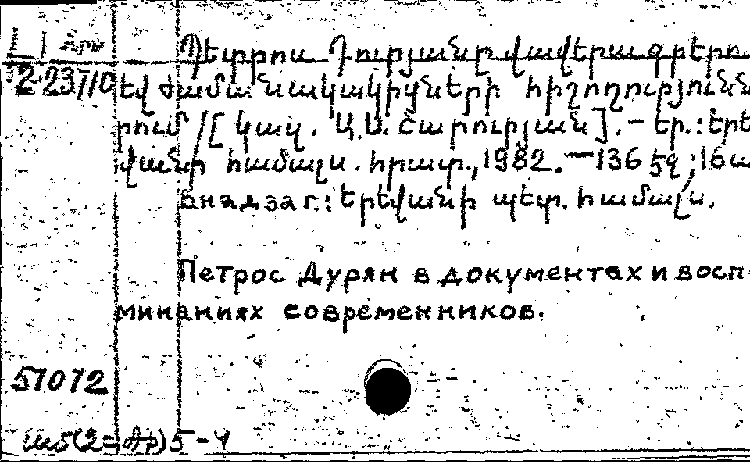 Պետրոս Դուրյանը վավերագրերու
2-23710 եվ ժամանակակիցների հիշողություննե
րում /[կազ. Ա.Ս. Շարուրյան]. - Եր.: Երե
վանի համալս. հրատ., 1982. - 136 էջ;
В надзаг.: Երեվանի պետ. համալս.
Петрос Дурян в документах и восп
минаниях современников.
51072
5-4